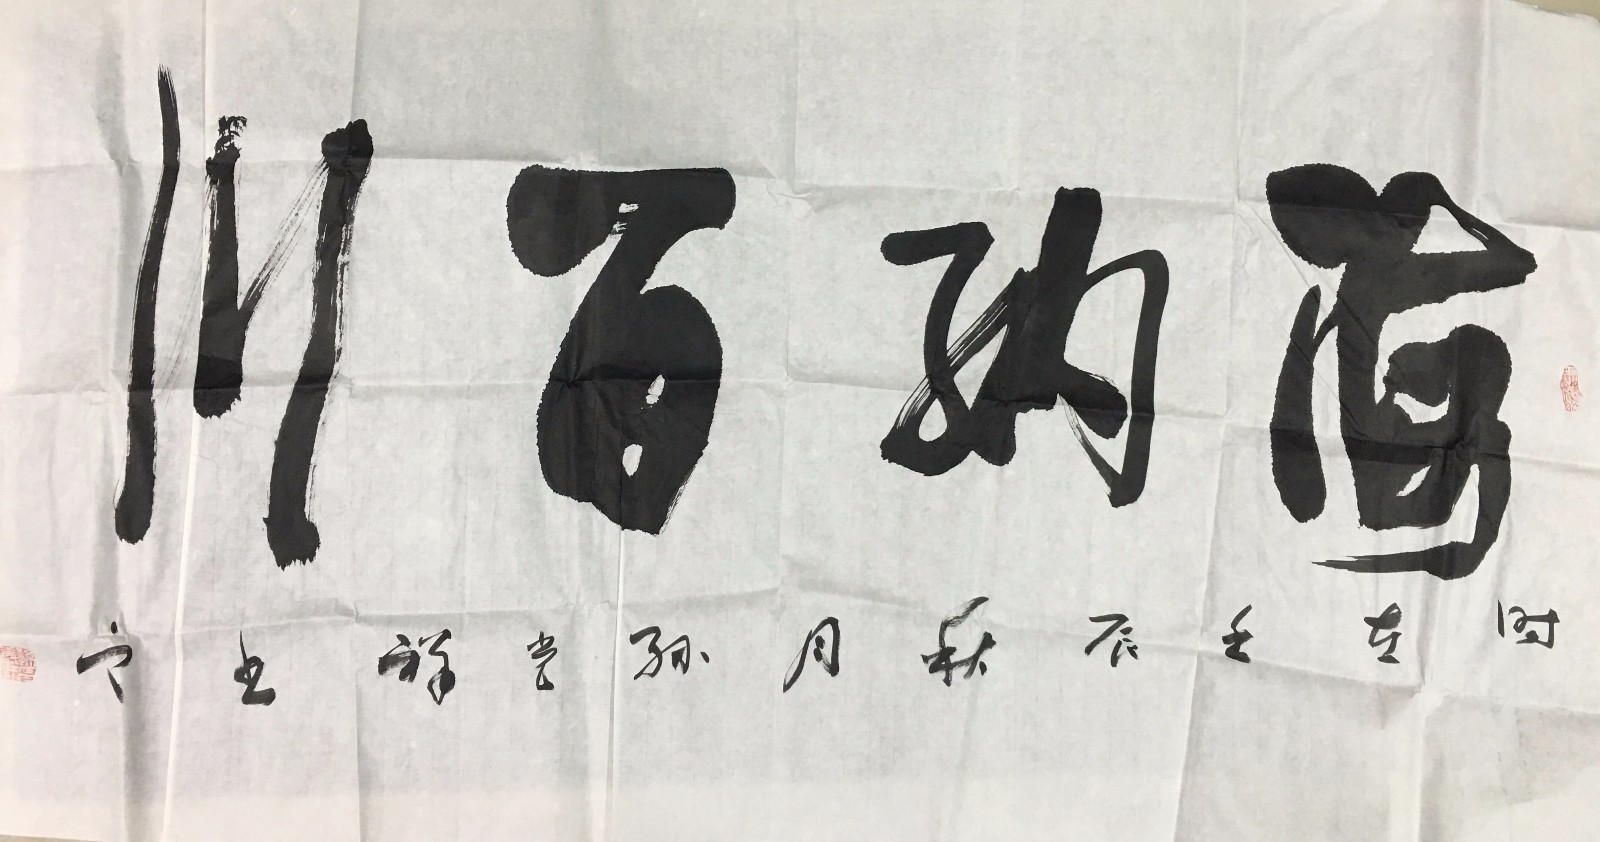 海纳百川
时在壬辰秋月孙堂祥书